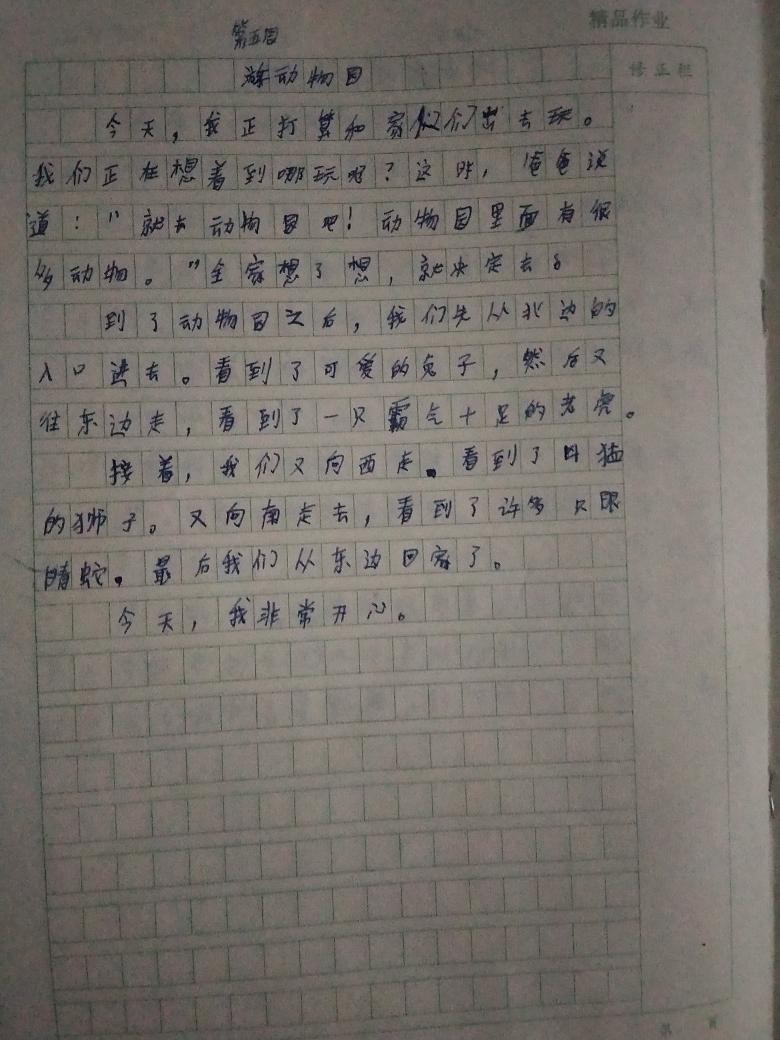 精品作业
第五周
修正栏
游动物园
今天，我正打算和家人们出去玩。
我们正在想着到哪玩呢？这时，爸爸说
道："就去动物园吧！动物园里面有很
多动物。"全家想了想，就决定去。
到了动物园之后，我们先从北边的
入口进去。看到了可爱的兔子，然后又
往东边走，看到了一只霸气十足的老虎。
接着，我们又向西走。看到了凶猛
的狮子。又向南走去，看到了许多只眼
睛蛇。最后我们从东边回家了。
今天，我非常开心。
第 页